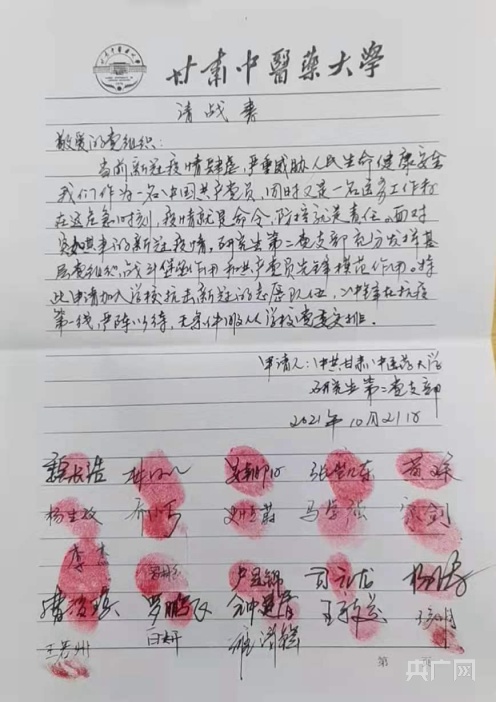 甘肃中醫藥大學
请战书
敬爱的党组织:
当前新冠疫情肆虐,严重威胁人民生命健康安全
我们作为一名中国共产党员,同时又是一名医务工作者
在这应急时刻,疫情就是命令,防控就是责任。面对
突如其来的新冠疫情,研究生第二党支部充分发挥基
层党组织战斗堡垒作用和共产党员先锋模范作用。特
此申请加入学校抗击新冠的志愿队伍,冲锋在抗疫
第一线,严阵以待,无条件服从学校党委安排.
申请人:中共甘肃中医药大学
研究生第二党支部
2021年10月21日
杨生牧
李杰
卢昱锦 司元龙
罗鹏飞 钟建章
王芳州 白妍
第 页
央广网